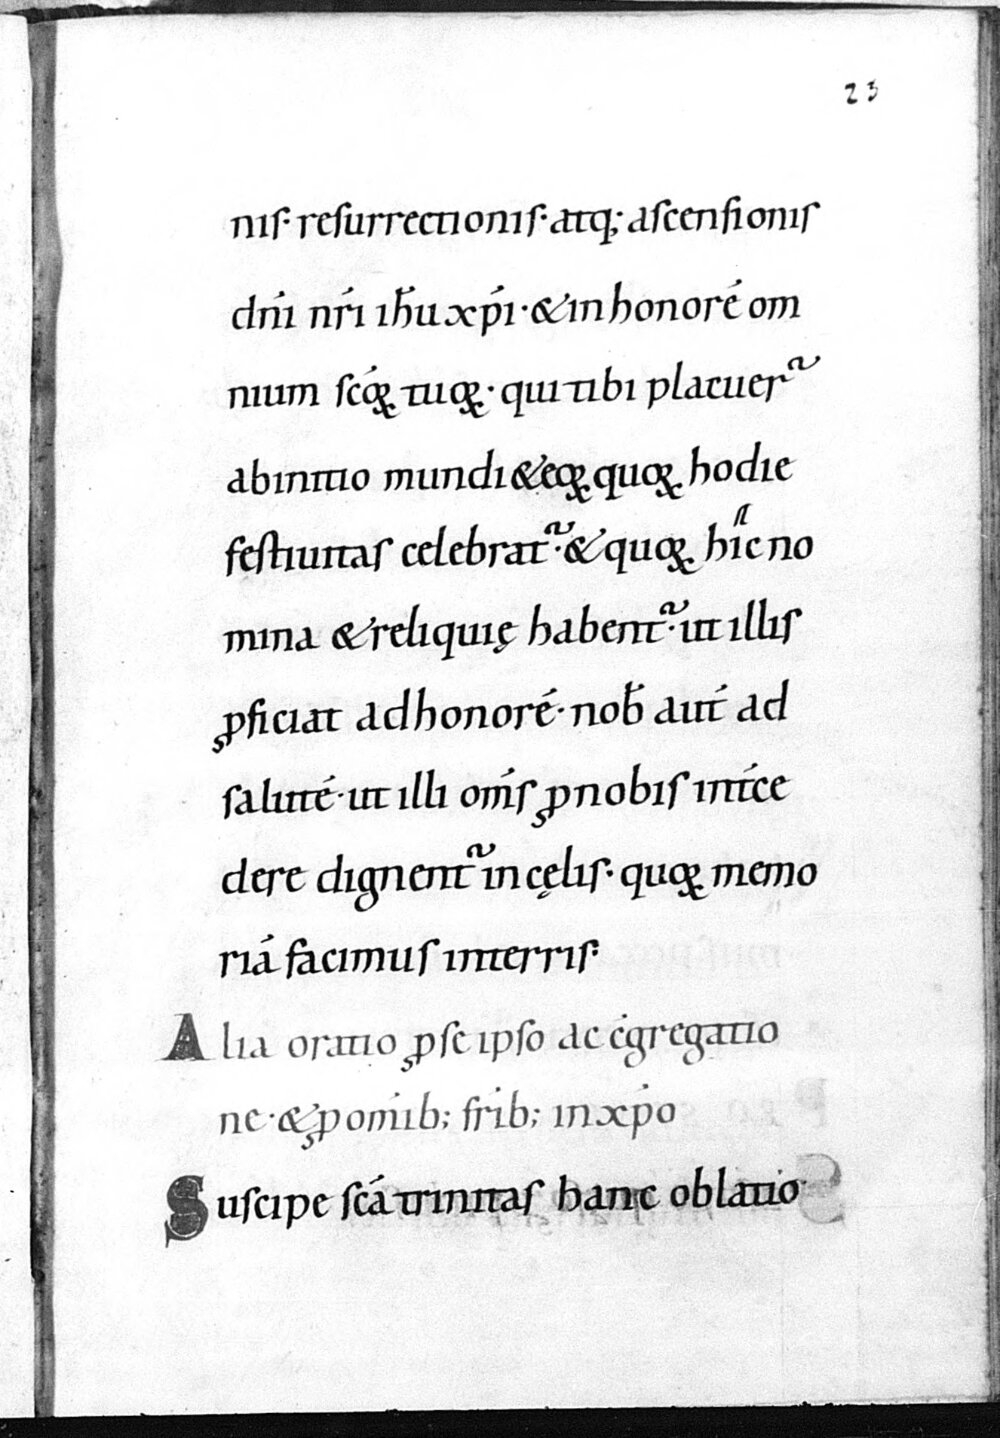 23
niſ· reſurrectioniſ· atq; aſcenſioniſ
dńi nŕi ih̅u xṕi · & in honoré om
nium ſcó⁊ꝝ tuoꝝ · qui tibi placuer᷑
ab initio mundi & eoꝝ quoꝝ hodie
feſtiuitaſ celebrat᷑ · & quoꝝ hic no
mina & reliquię habent᷑ · ut illiſ
ꝓficiat ad honoré · nob̅ aut́ ad
ſaluté · ut illi omśſ ꝓ nobiſ int́ce
dere dignent᷑ in cęliſ · quoꝝ memo
riá facimuſ in terriſ·
Alia oratio ꝓ ſe ipſo ac ćgregatio
ne · & ꝓ omíb; fríb; in xṕo
Suſcipe ſcá trinitaſ hanc oblatio